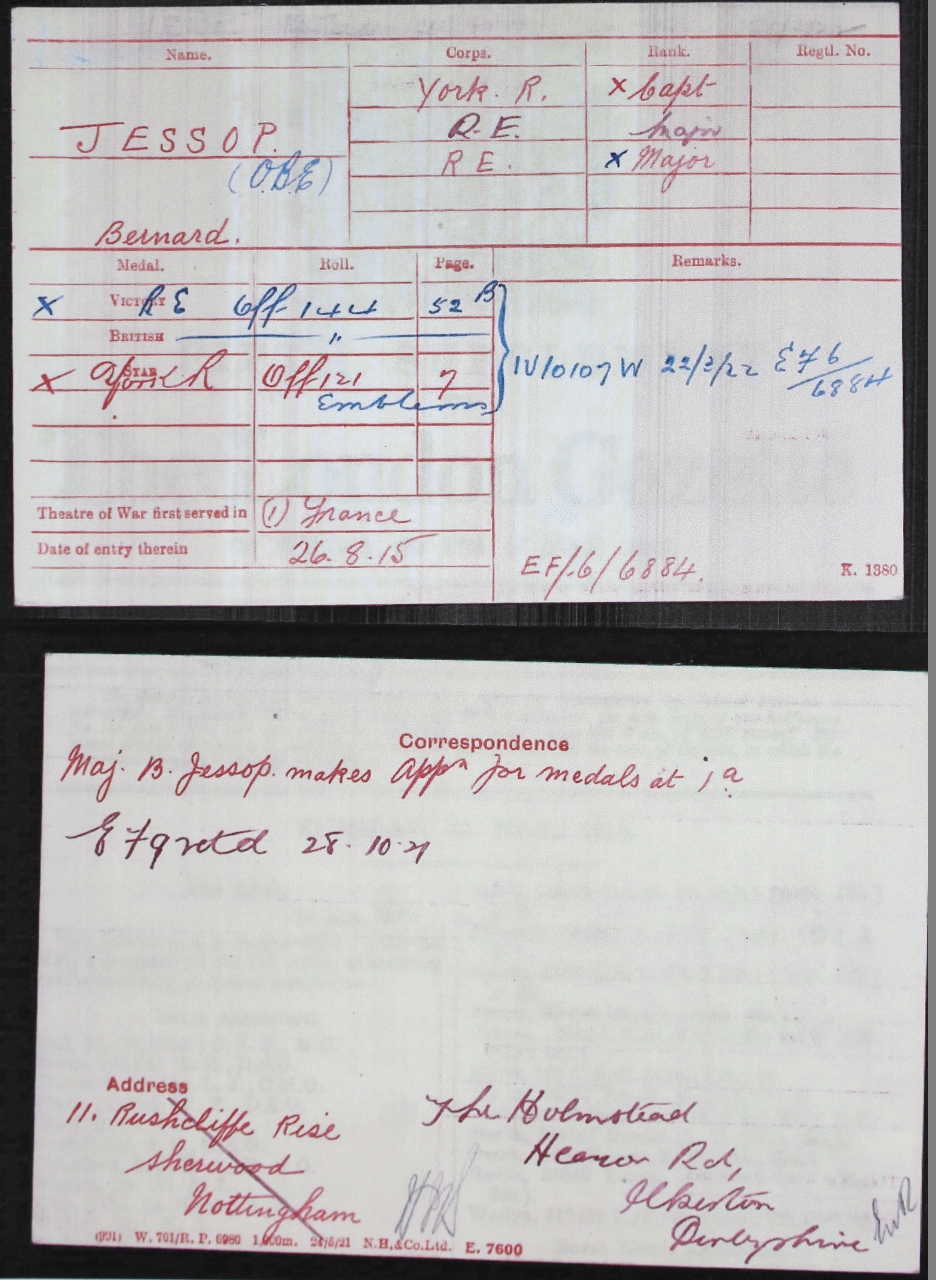 Name. Corps. Rank. Regtl. No.
York. R. X Capt
JESSOP. R.E. Major
(OBE) R E. X Major
Bernard.
Medal. Roll. Page. Remarks.
X VICTORY R E Off 144 52 B
BRITISH "
X STAR York R Off 121 7 IV/0107 W 22/3/22 E F 6/6884
Emblems
Theatre of War first served in (1) France
Date of entry therein 26.8.15
EF/.6/6884. K. 1380
Correspondence
Maj. B. Jessop. makes Appn for medals at 1a
E F 9 retd 28.10.21
Address
11. Rushcliffe Rise
Sherwood
Nottingham
The Holmstead
Heanor Rd,
Ilkeston
Derbyshire
(991) W. 761/R.P. 6980 1,000m. 24/6/21 N.H.&Co.Ltd. E. 7600